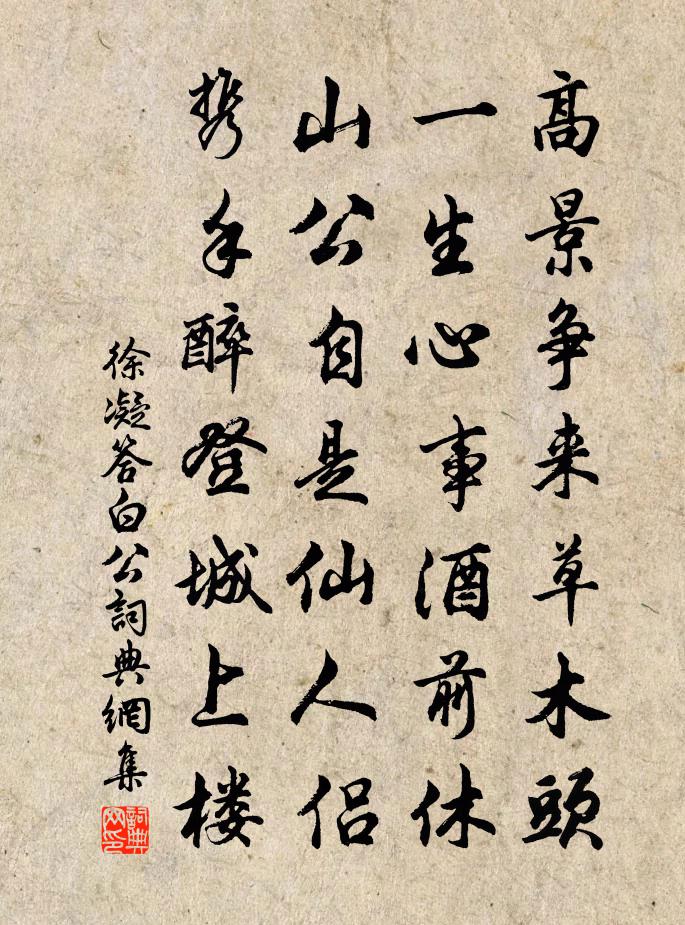 高景争来草木頭
一生心事酒前休
山公自是仙人侣
携手醉登城上楼
徐凝答白公詞典網集
詞典网印